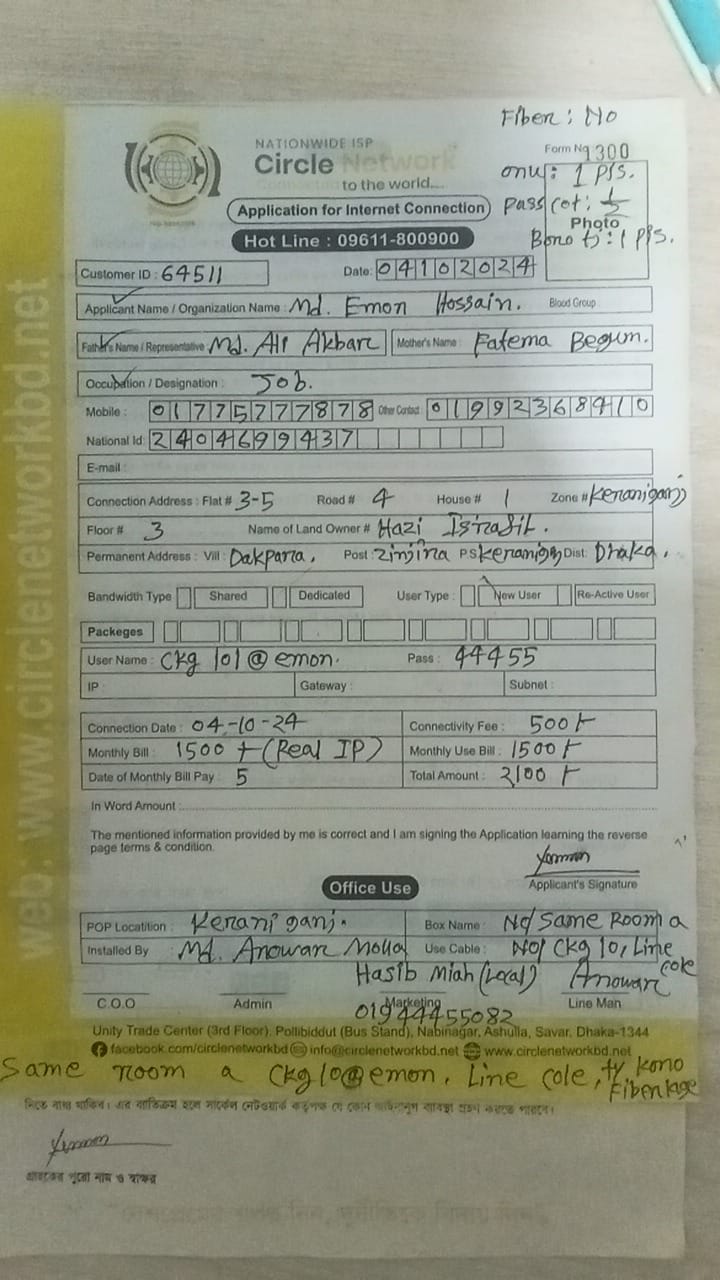 Fiber : No
NATIONWIDE ISP
Circle Network
to the world....
Form No 1300
onu : 1 Pis.
Pass cot :
Photo
Application for Internet Connection
Hot Line : 09611-800900
Customer ID : 64511
Date: 04102024
Applicant Name / Organization Name : Md. Emon Hossain. Blood Group
Father's Name / Representative Md. Ali Akbar Mother's Name : Fatema Begum.
Occupation / Designation : Job.
Mobile : 01775777878 Other Contact: 01992368410
National Id: 2404699437
E-mail :
Connection Address : Flat # 3-5 Road # 4 House # 1 Zone # Keraniganj
Floor # 3 Name of Land Owner # Hazi Israfil.
Permanent Address : Vill : Dakpara, Post : Zinjira PS Keraniganj Dist: Dhaka.
Bandwidth Type Shared Dedicated User Type : New User Re-Active User
Packeges
User Name : Ckg 101@emon. Pass : 44455
IP : Gateway : Subnet :
Connection Date : 04-10-24 Connectivity Fee : 500/-
Monthly Bill : 1500 + (Real IP) Monthly Use Bill : 1500/-
Date of Monthly Bill Pay : 5 Total Amount : 2100/-
In Word Amount :
The mentioned information provided by me is correct and I am signing the Application learning the reverse
page terms & condition.
Applicant's Signature
Office Use
POP Locatition : Keraniganj. Box Name : No/Same Room a
Installed By : Md. Anowar Molla Use Cable : No/Ckg 10, Line cole
Hasib Miah (Local) Anowar
C.O.O Admin Marketing Line Man
01944455082
Unity Trade Center (3rd Floor), Pollibiddut (Bus Stand), Nabinagar, Ashulla, Savar, Dhaka-1344
facebook.com/circlenetworkbd info@circlenetworkbd.net www.circlenetworkbd.net
Same room a Ckg10@emon, Line cole, ty kono
Fiber lage
গ্রাহকের পুরো নাম ও স্বাক্ষর
web: www.circlenetworkbd.net